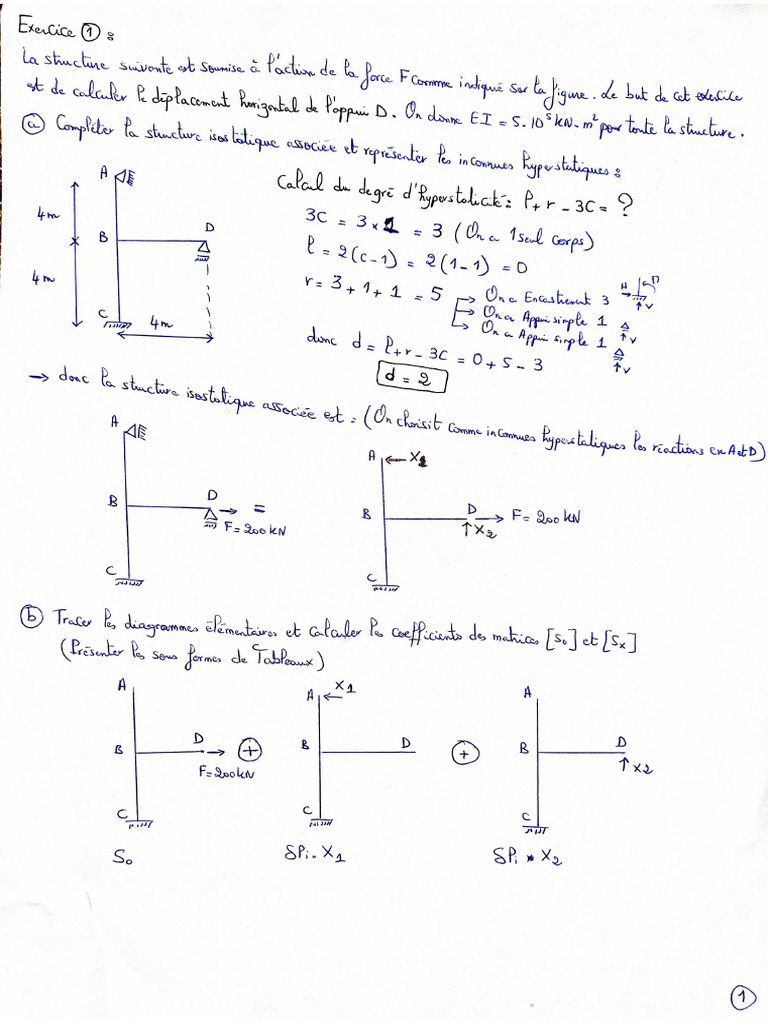 Exercice ① :
La structure suivante est soumise à l'action de la force F comme indiqué sur la figure. Le but de cet exercice
est de calculer le déplacement horizontal de l'appui D. On donne EI = 5.10⁵ kN.m² pour toute la structure.
ⓐ Compléter la structure isostatique associée et représenter les inconnues hyperstatiques :
Calcul du degré d'hyperstaticité : l + r - 3C = ?
3C = 3 × 1 = 3 (On a 1 seul corps)
l = 2(c-1) = 2(1-1) = 0
r = 3 + 1 + 1 = 5
On a Encastrement 3
On a Appui simple 1
On a Appui simple 1
H
M
V
V
V
donc d = l + r - 3C = 0 + 5 - 3
d = 2
A
4m
B
D
4m
C
4m
→ donc la structure isostatique associée est : (On choisit comme inconnues hyperstatiques les réactions en A et D)
A
B
D
F = 200 kN
C
=
A
X1
B
D
F = 200 kN
X2
C
ⓑ Tracer les diagrammes élémentaires et calculer les coefficients des matrices [S₀] et [Sx]
(Présenter les sous formes de Tableaux)
A
B
D
F = 200 kN
C
S₀
+
A
X1
B
D
C
δPi . X1
+
A
B
D
X2
C
δPi * X2
①